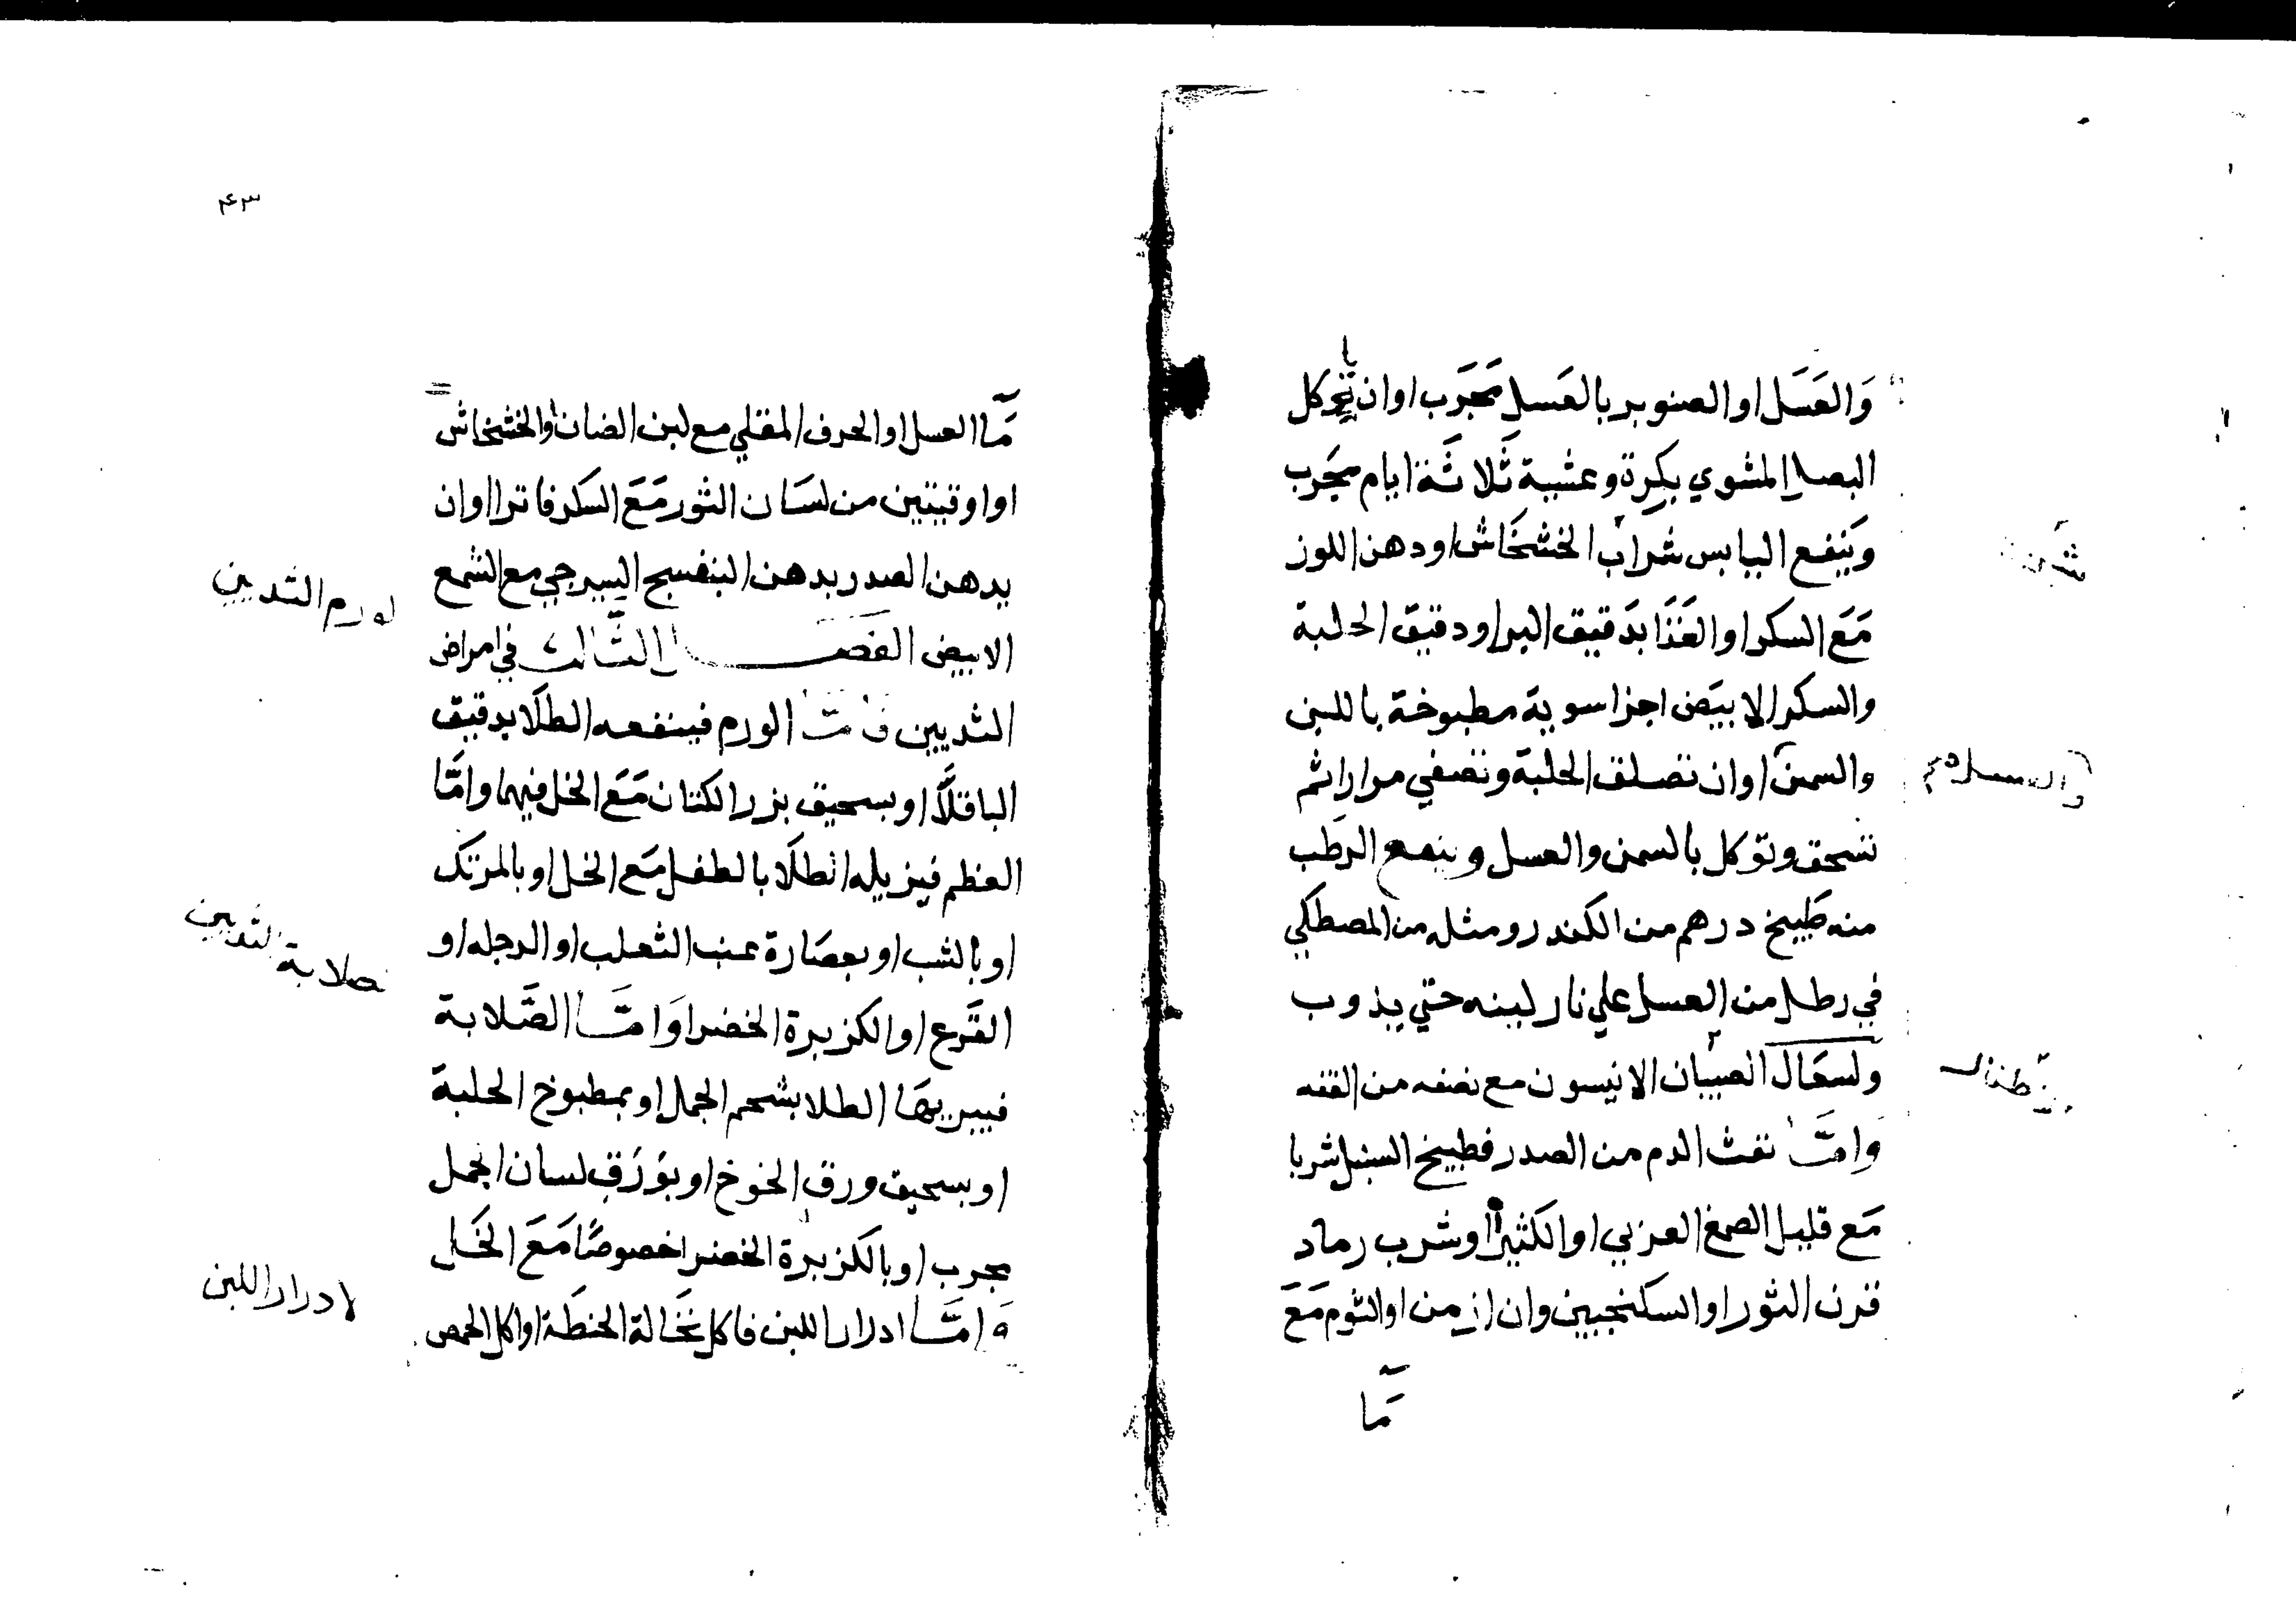 وَالعَسَل او الصنوبر بالعَسل مجَرَب او ان ياكل
البصل المشوي بكرة وعشية ثَلاثَة ايام مجَرب
وَينفع اليابس شراب الخشخَاش او دهن اللوز
مَعَ السكر او الغَذَا بدَقيق البر او دقيق الحلبة
والسكر الابيَض اجزا سوية مطبوخة باللبن
والسمن او ان تصلق الحلبة وتصفي مرارا ثم
تسحق وتوكل بالسمن والعسل وينفع الرطب
منه طبيخ درهم من الكندر ومثله من المصطكي
في رطل من العسل علي نار لينه حتي يذوب
ولسعَال الصبيان الانيسون مع نصفه من القنه
وامَّا نفث الدم من الصدر فطبيخ السنبل شربا
مَع قليل الصمغ العربي او الكثيرا او شرب رماد
قرن الثور او السكنجبين وان ازمن او الثوم مَعَ
مَا
والسعال دم
٤٣
مَآ العسل او الحرف المقلي مع لبن الضان والخشخاش
او اوقيتين من لسَان الثور مَعَ السكر فاترا او ان
يدهن الصدر بدهن البنفسج السيرجي مع الشمع
الابيض الفصل الثالث في امراض
الثديين فامَّا الورم فينفعه الطلَا بدقيق
الباقلَّا او بسحيق بزر الكتان مَعَ الخل فيهما وامَّا
العظم فيزيله الطلَا بالطفل مَع الخل او بالمرتك
او بالشب او بعصَارة عنب الثعلب او الرجله او
القرع او الكزبرة الخضرا وَامَّا الصَّلابة
فيبريهَا الطلا بشحم الجمل او بمطبوخ الحلبة
او بسحيق ورق الخوخ او بوَرَق لسان الجمل
مجرب او بالكزبرة الخضرا خصوصًا مَعَ الخَل
وَامَّا ادرار اللبن فاكل نخَالة الحنطَة او اكل الحمص
لورم الثديين
صلابة الثديين
لادرار اللبن